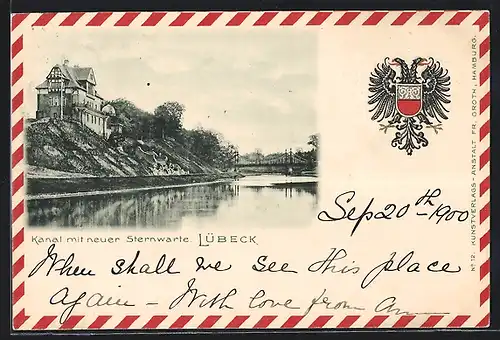 Kanal mit neuer Sternwarte. LÜBECK.
Sep 20th - 1900
When shall we see this place
Again - With love from
No 12. KUNSTVERLAGS-ANSTALT FR. GROTH, HAMBURG.